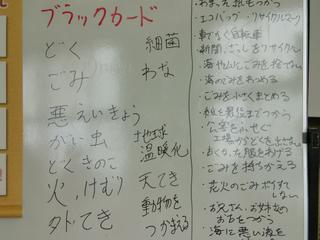 ブラックカード
どく
ごみ
悪えいきょう
がい虫
どくきのこ
火、けむり
外てき
細菌
わな
地球
温暖化
天てき
動物を
つかまえる
・エコバッグ・リサイクルマーク
・車でなく自転車
・新聞、ざっしをリサイクル
・海や山にごみを捨てない
・海のごみをあつめる
・ごみを小さくまとめる
・公害をふせぐ
・ごみを持ちかえる
・花火のごみポイすて
しない
・お兄さん、お姉さんの
お古をつかう
・海に悪い液を